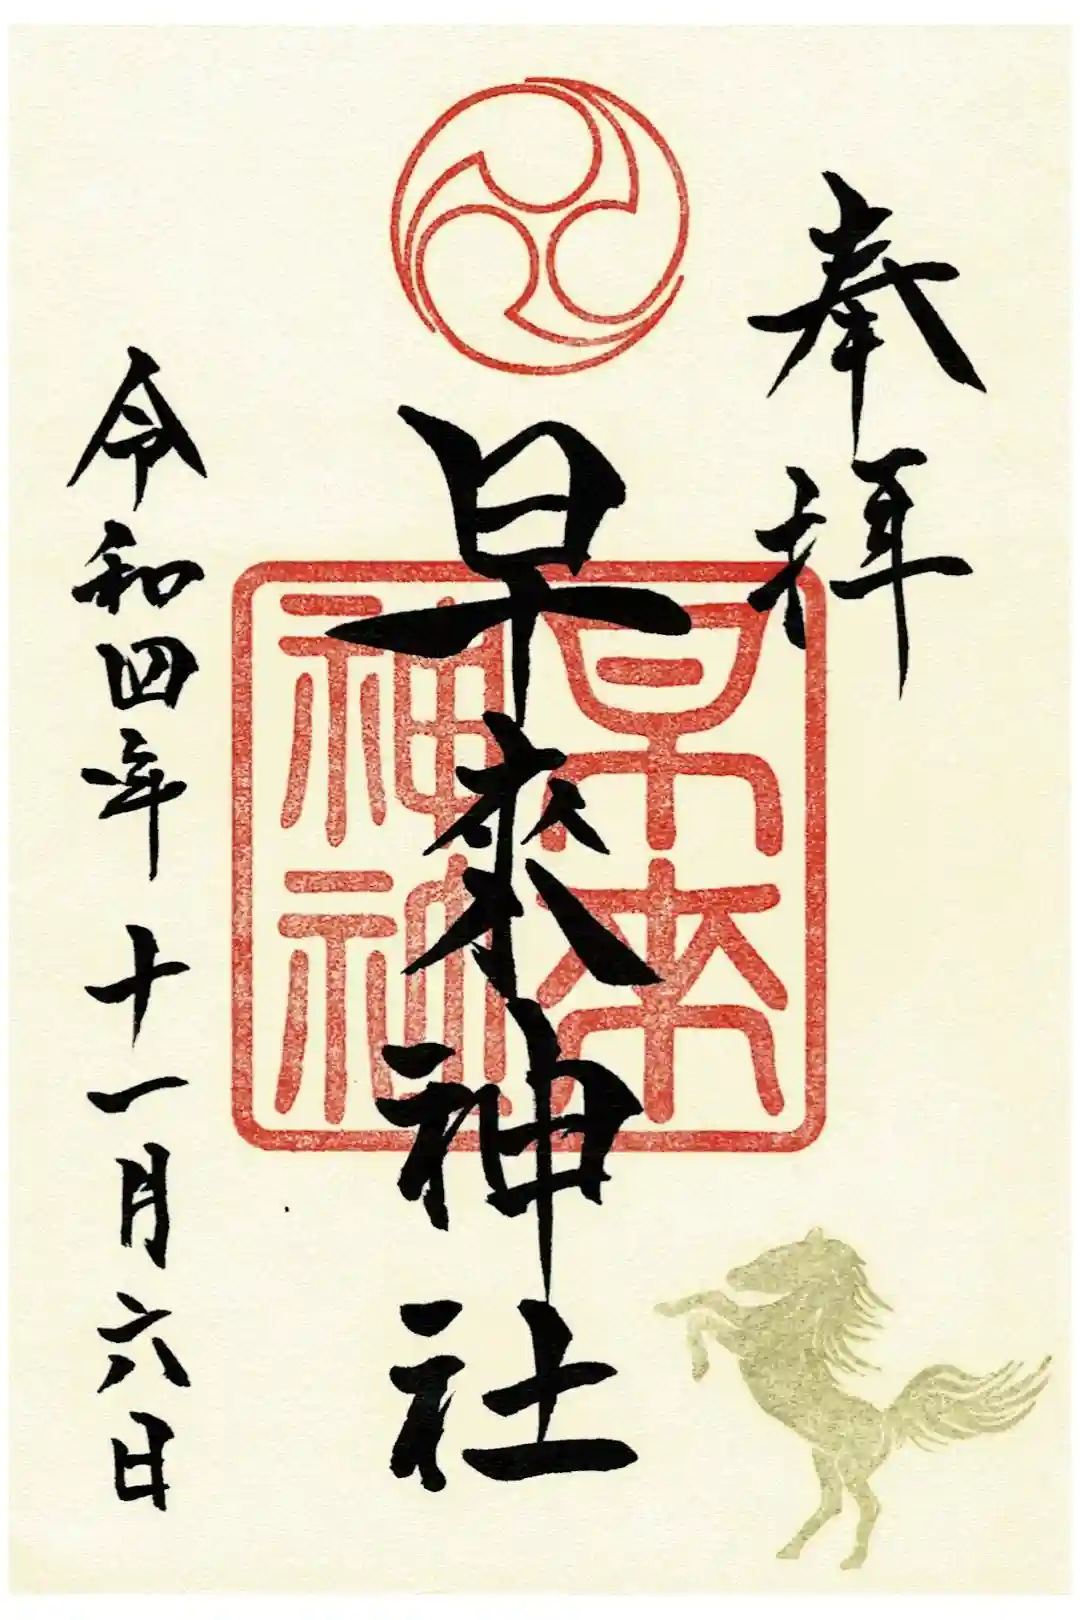 奉拝
早來神社
早来
神社
令和四年十一月六日